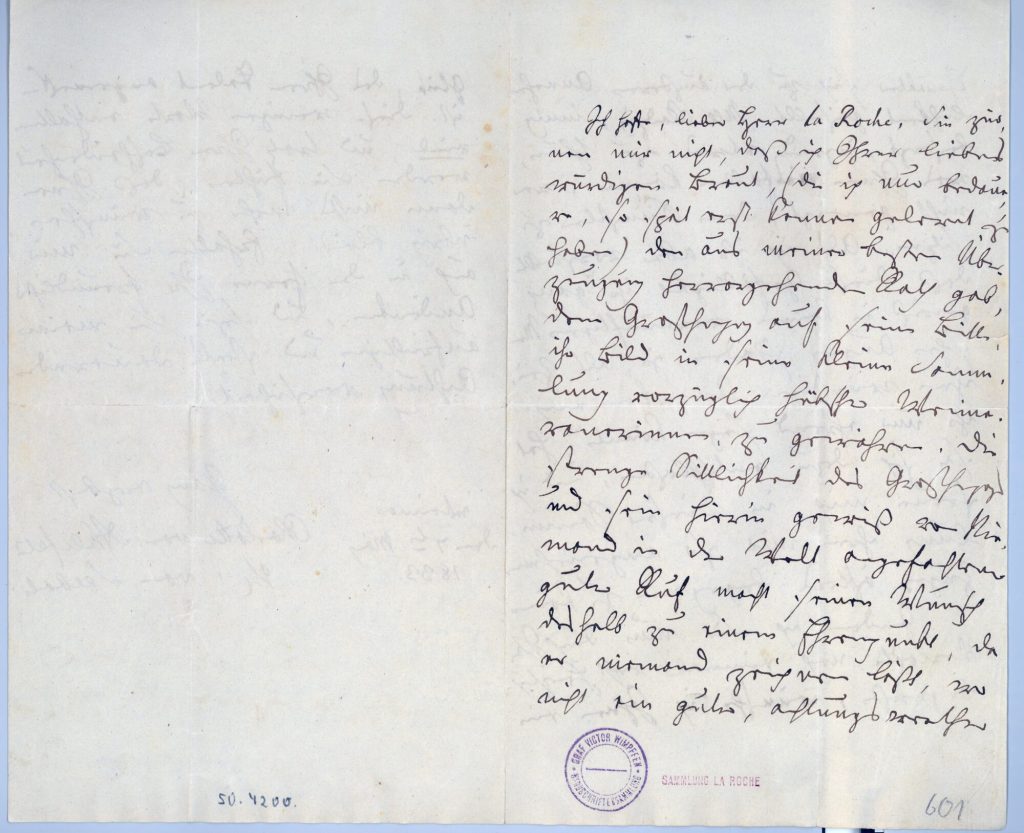 Ich hoffe, lieber Herr La Roche, Sie zür,
nen mir nicht, daß ich Ihrer liebens
würdigen Braut, (die ich nur bedaue,
re, so spät erst kennen gelernt zu
haben) den aus meiner besten Über,
zeugung hervorgehenden Rath gab,
dem Großherzog auf seine Bitte,
ihr Bild in seine kleine Samm,
lung vorzüglich hübscher Weima,
ranerinnen, zu gewähren. Die
strenge Sittlichkeit des Großherzogs
und sein hierin gewiß von Nie,
mand in der Welt angefochtener
guter Ruf macht seinen Wunsch
deshalb zu einem Ehrenpunkt, da
er niemand zeichnen läßt, wo
nicht ein guter, achtungswerther
GRAF VICTOR WIMPFFEN
HANDSCHRIFTENSAMMLUNG
SAMMLUNG LA ROCHE
50.4200.
601